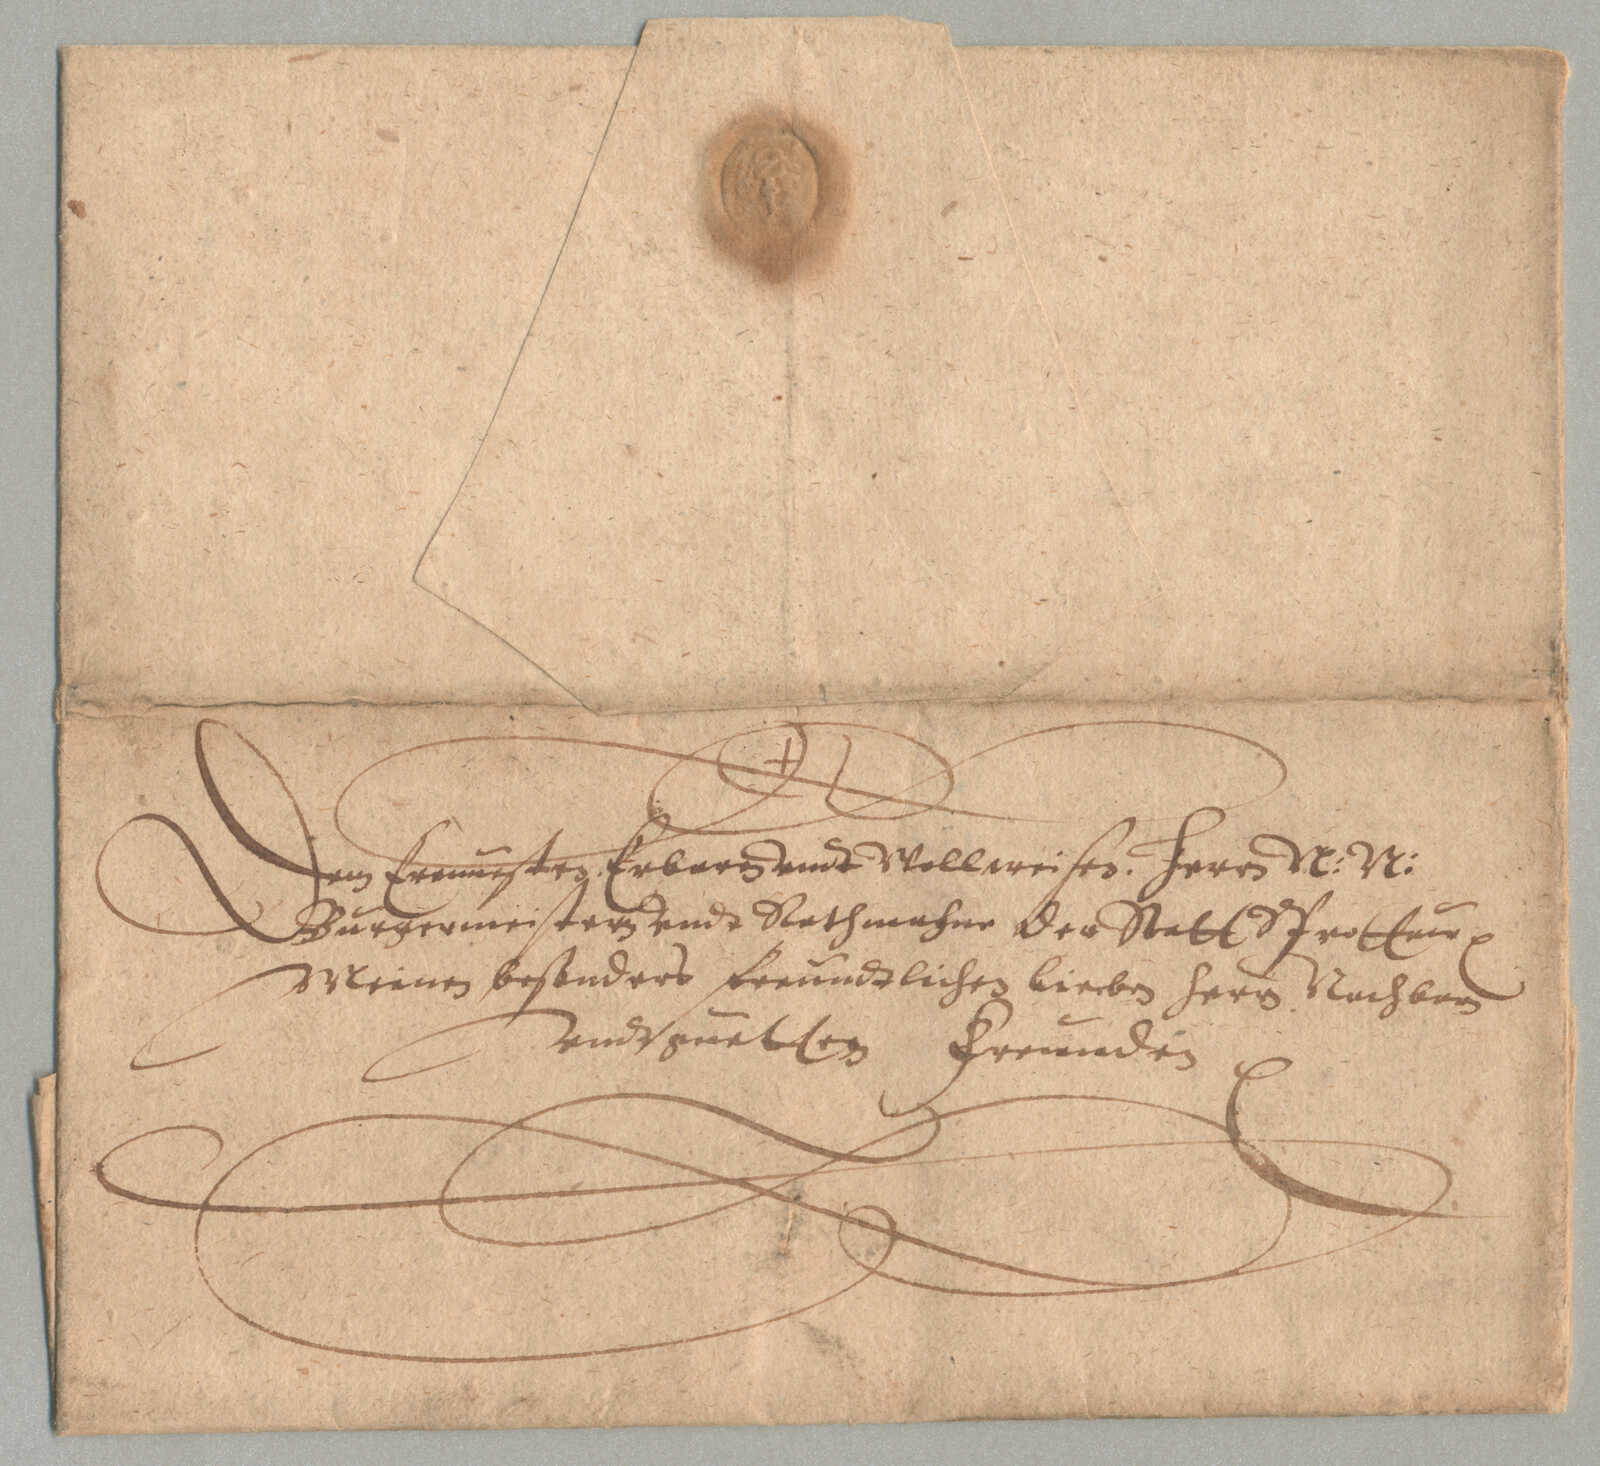 Dem Ernuesten Erbarn vndt Wollweisen. Herrn N: N:
Burgermeistern vndt Rathmahne der Statt Sprottaw
Meinen besonders freundtlichen lieben Herrn Nachbarn
vndt guetten Freunden